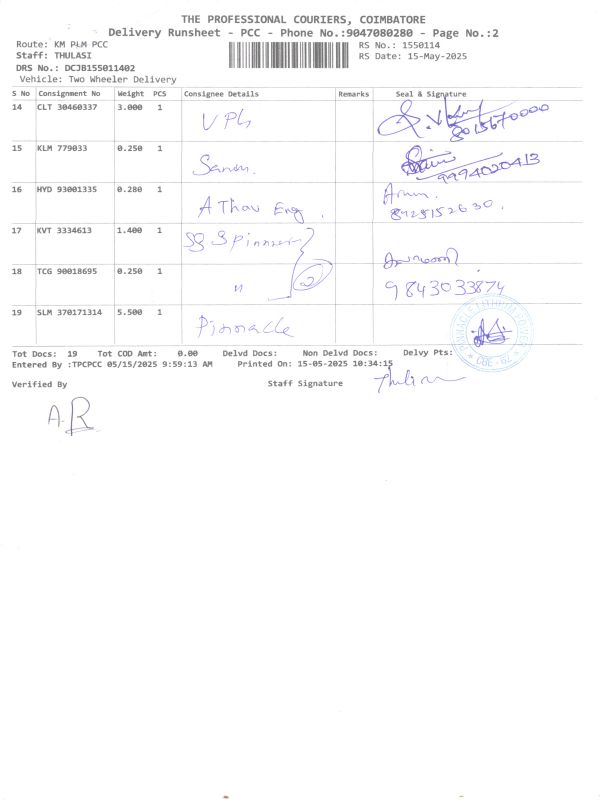 THE PROFESSIONAL COURIERS, COIMBATORE
Delivery Runsheet - PCC - Phone No.:9047080280 - Page No.:2
Route: KM PLM PCC
RS No.: 1550114
Staff: THULASI
RS Date: 15-May-2025
DRS No.: DCJB155011402
Vehicle: Two Wheeler Delivery
S No Consignment No Weight PCS Consignee Details Remarks Seal & Signature
14 CLT 30460337 3.000 1 V Pls 8015670000
15 KLM 779033 0.250 1 9994020413
16 HYD 93001335 0.280 1 A Thav Eng. Arun. 8925152630.
17 KVT 3334613 1.400 1 SS Spinners
18 TCG 90018695 0.250 1 " 2 9843033874
19 SLM 370171314 5.500 1 Pinnacle
Tot Docs: 19 Tot COD Amt: 0.00 Delvd Docs: Non Delvd Docs: Delvy Pts:
Entered By :TPCPCC 05/15/2025 9:59:13 AM Printed On: 15-05-2025 10:34:15
Verified By Staff Signature
A.R